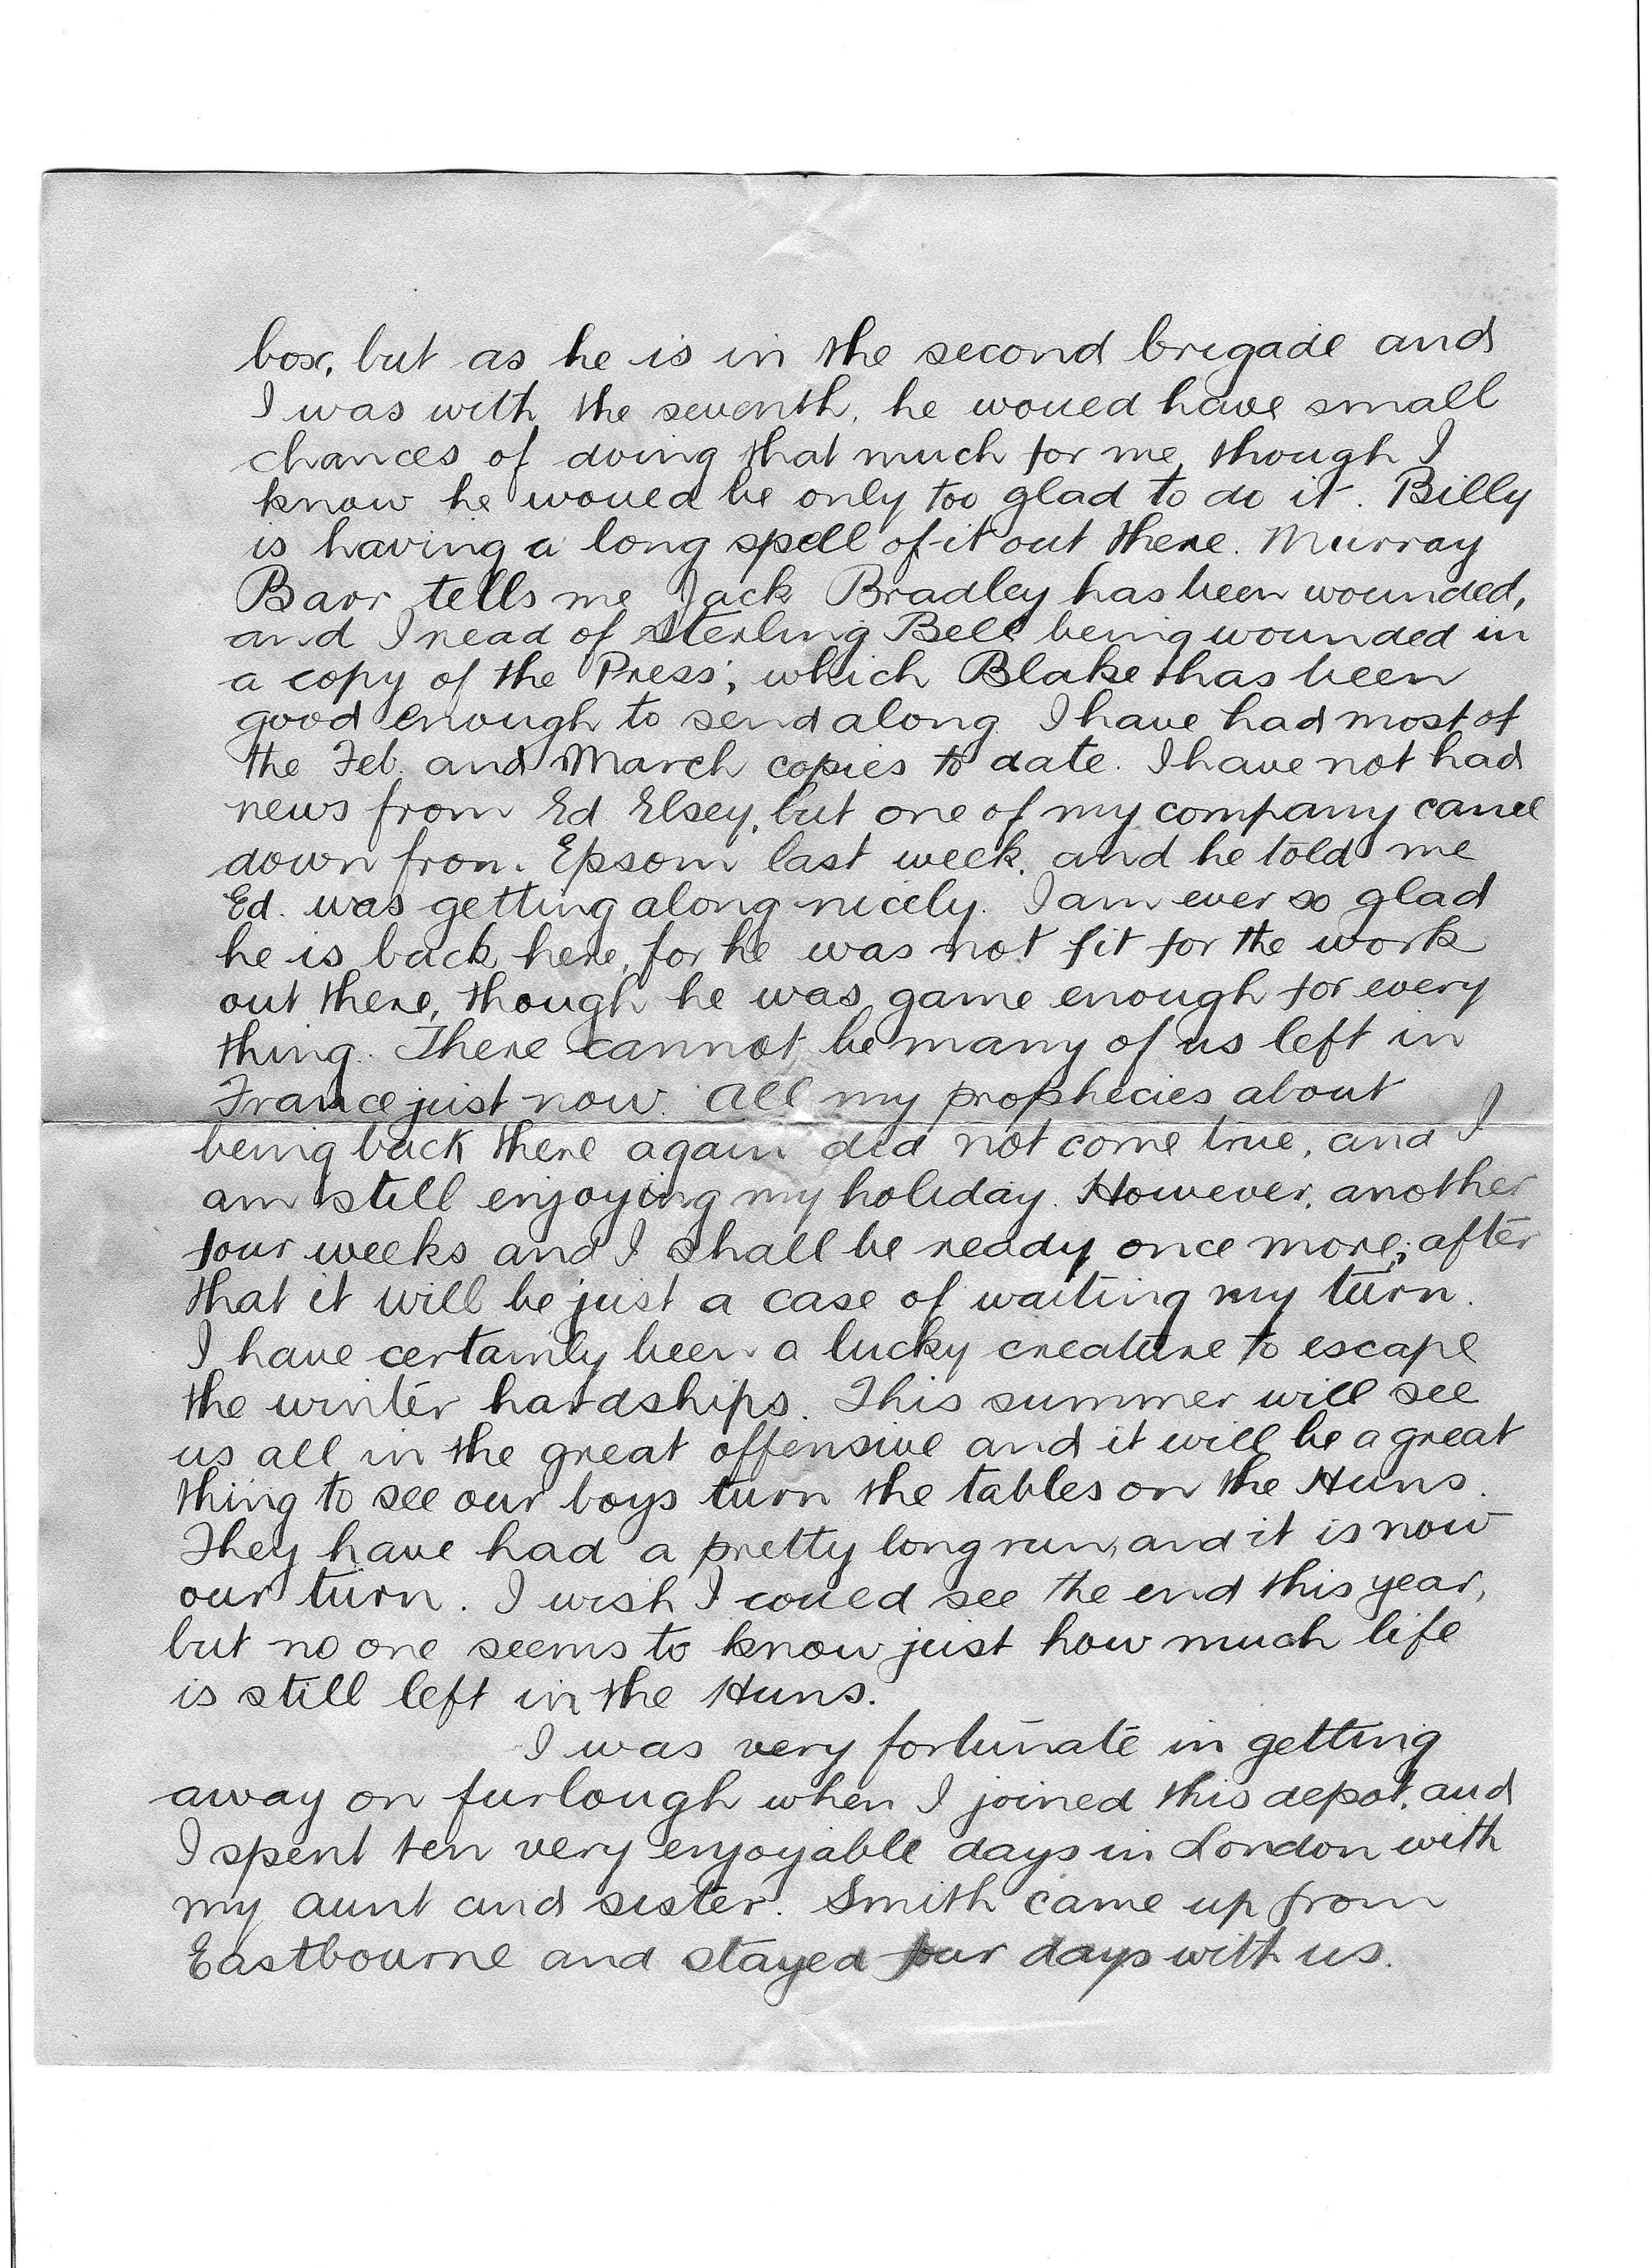 box, but as he is in the second brigade and
I was with the seventh, he would have small
chances of doing that much for me, though I
know he would be only too glad to do it. Billy
is having a long spell of it out there. Murray
Barr tells me Jack Bradley has been wounded,
and I read of Sterling Bell being wounded in
a copy of the 'Press', which Blake has been
good enough to send along. I have had most of
the Feb. and March copies to date. I have not had
news from Ed. Elsey, but one of my company came
down from Epsom last week, and he told me
Ed. was getting along nicely. I am ever so glad
he is back here, for he was not fit for the work
out there, though he was game enough for every
thing. There cannot be many of us left in
France just now. All my prophecies about
being back there again did not come true, and I
am still enjoying my holiday. However, another
four weeks and I shall be ready once more; after
that it will be just a case of waiting my turn.
I have certainly been a lucky creature to escape
the winter hardships. This summer will see
us all in the great offensive and it will be a great
thing to see our boys turn the tables on the Huns.
They have had a pretty long run, and it is now
our turn. I wish I could see the end this year,
but no one seems to know just how much life
is still left in the Huns.
I was very fortunate in getting
away on furlough when I joined this depot, and
I spent ten very enjoyable days in London with
my aunt and sister. Smith came up from
Eastbourne and stayed four days with us.